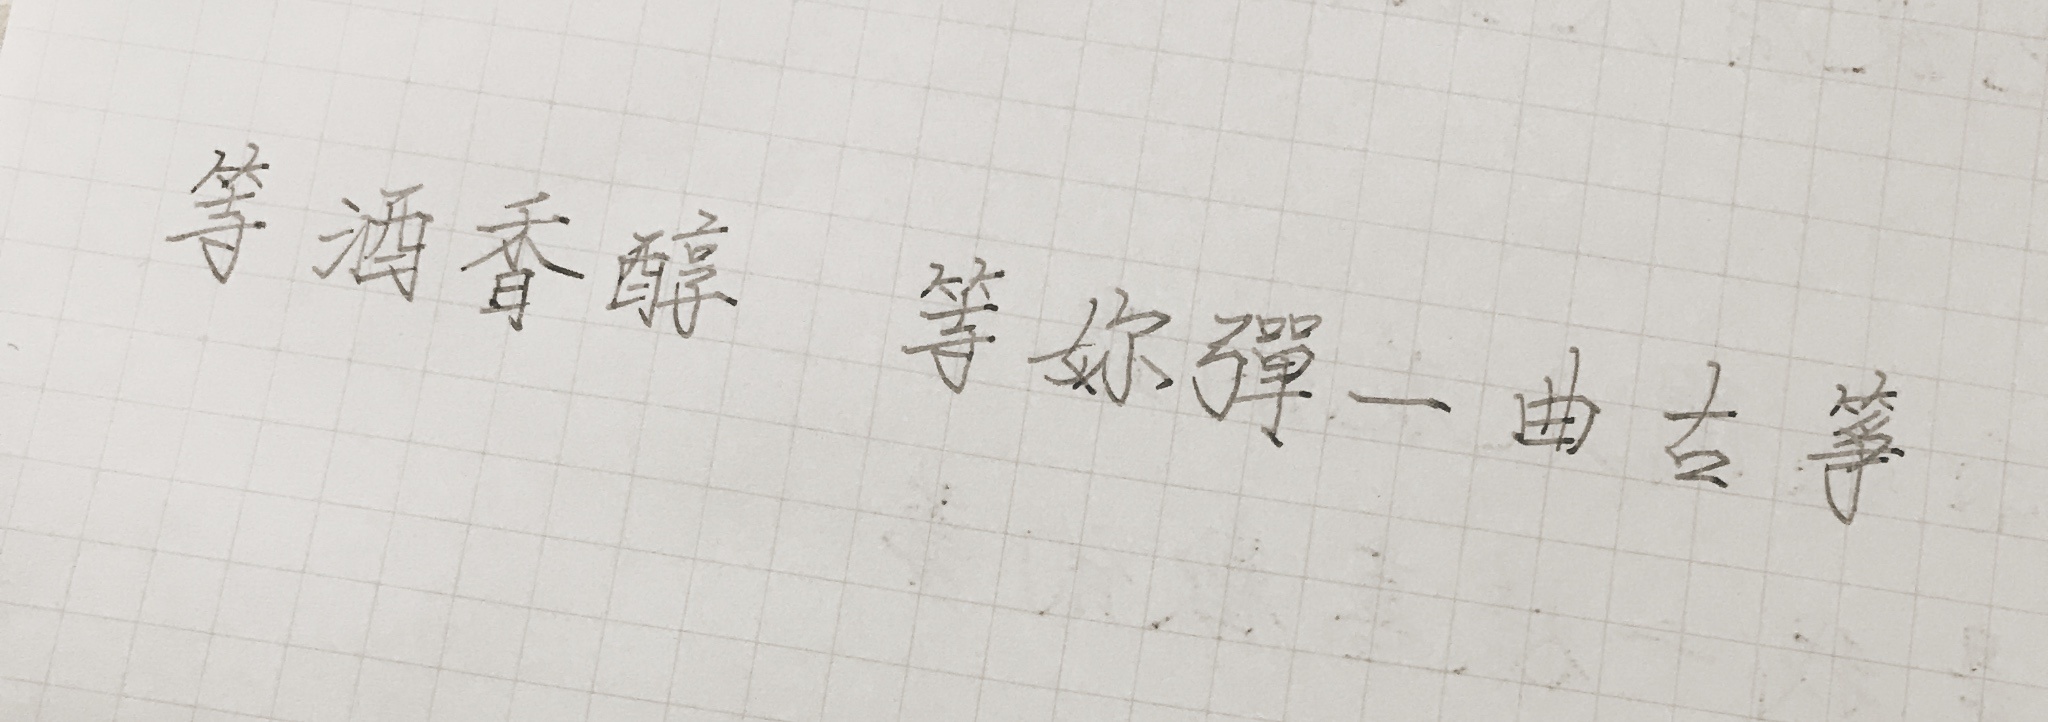 等酒香醇 等妳彈一曲古箏